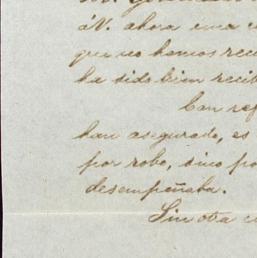 áV. ahora una c
que no hemos reci
ha sido bien recib
Con ref
han asegurado, es
por robo, sino po
desempeñaba.
Sin otra c